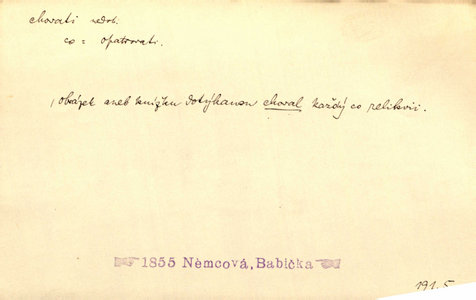 chovati nedok.
co = opatrovati.
, obrázek aneb knížku dotýkanou choval každý co relikvii.
1855 Němcová, Babička
191.5